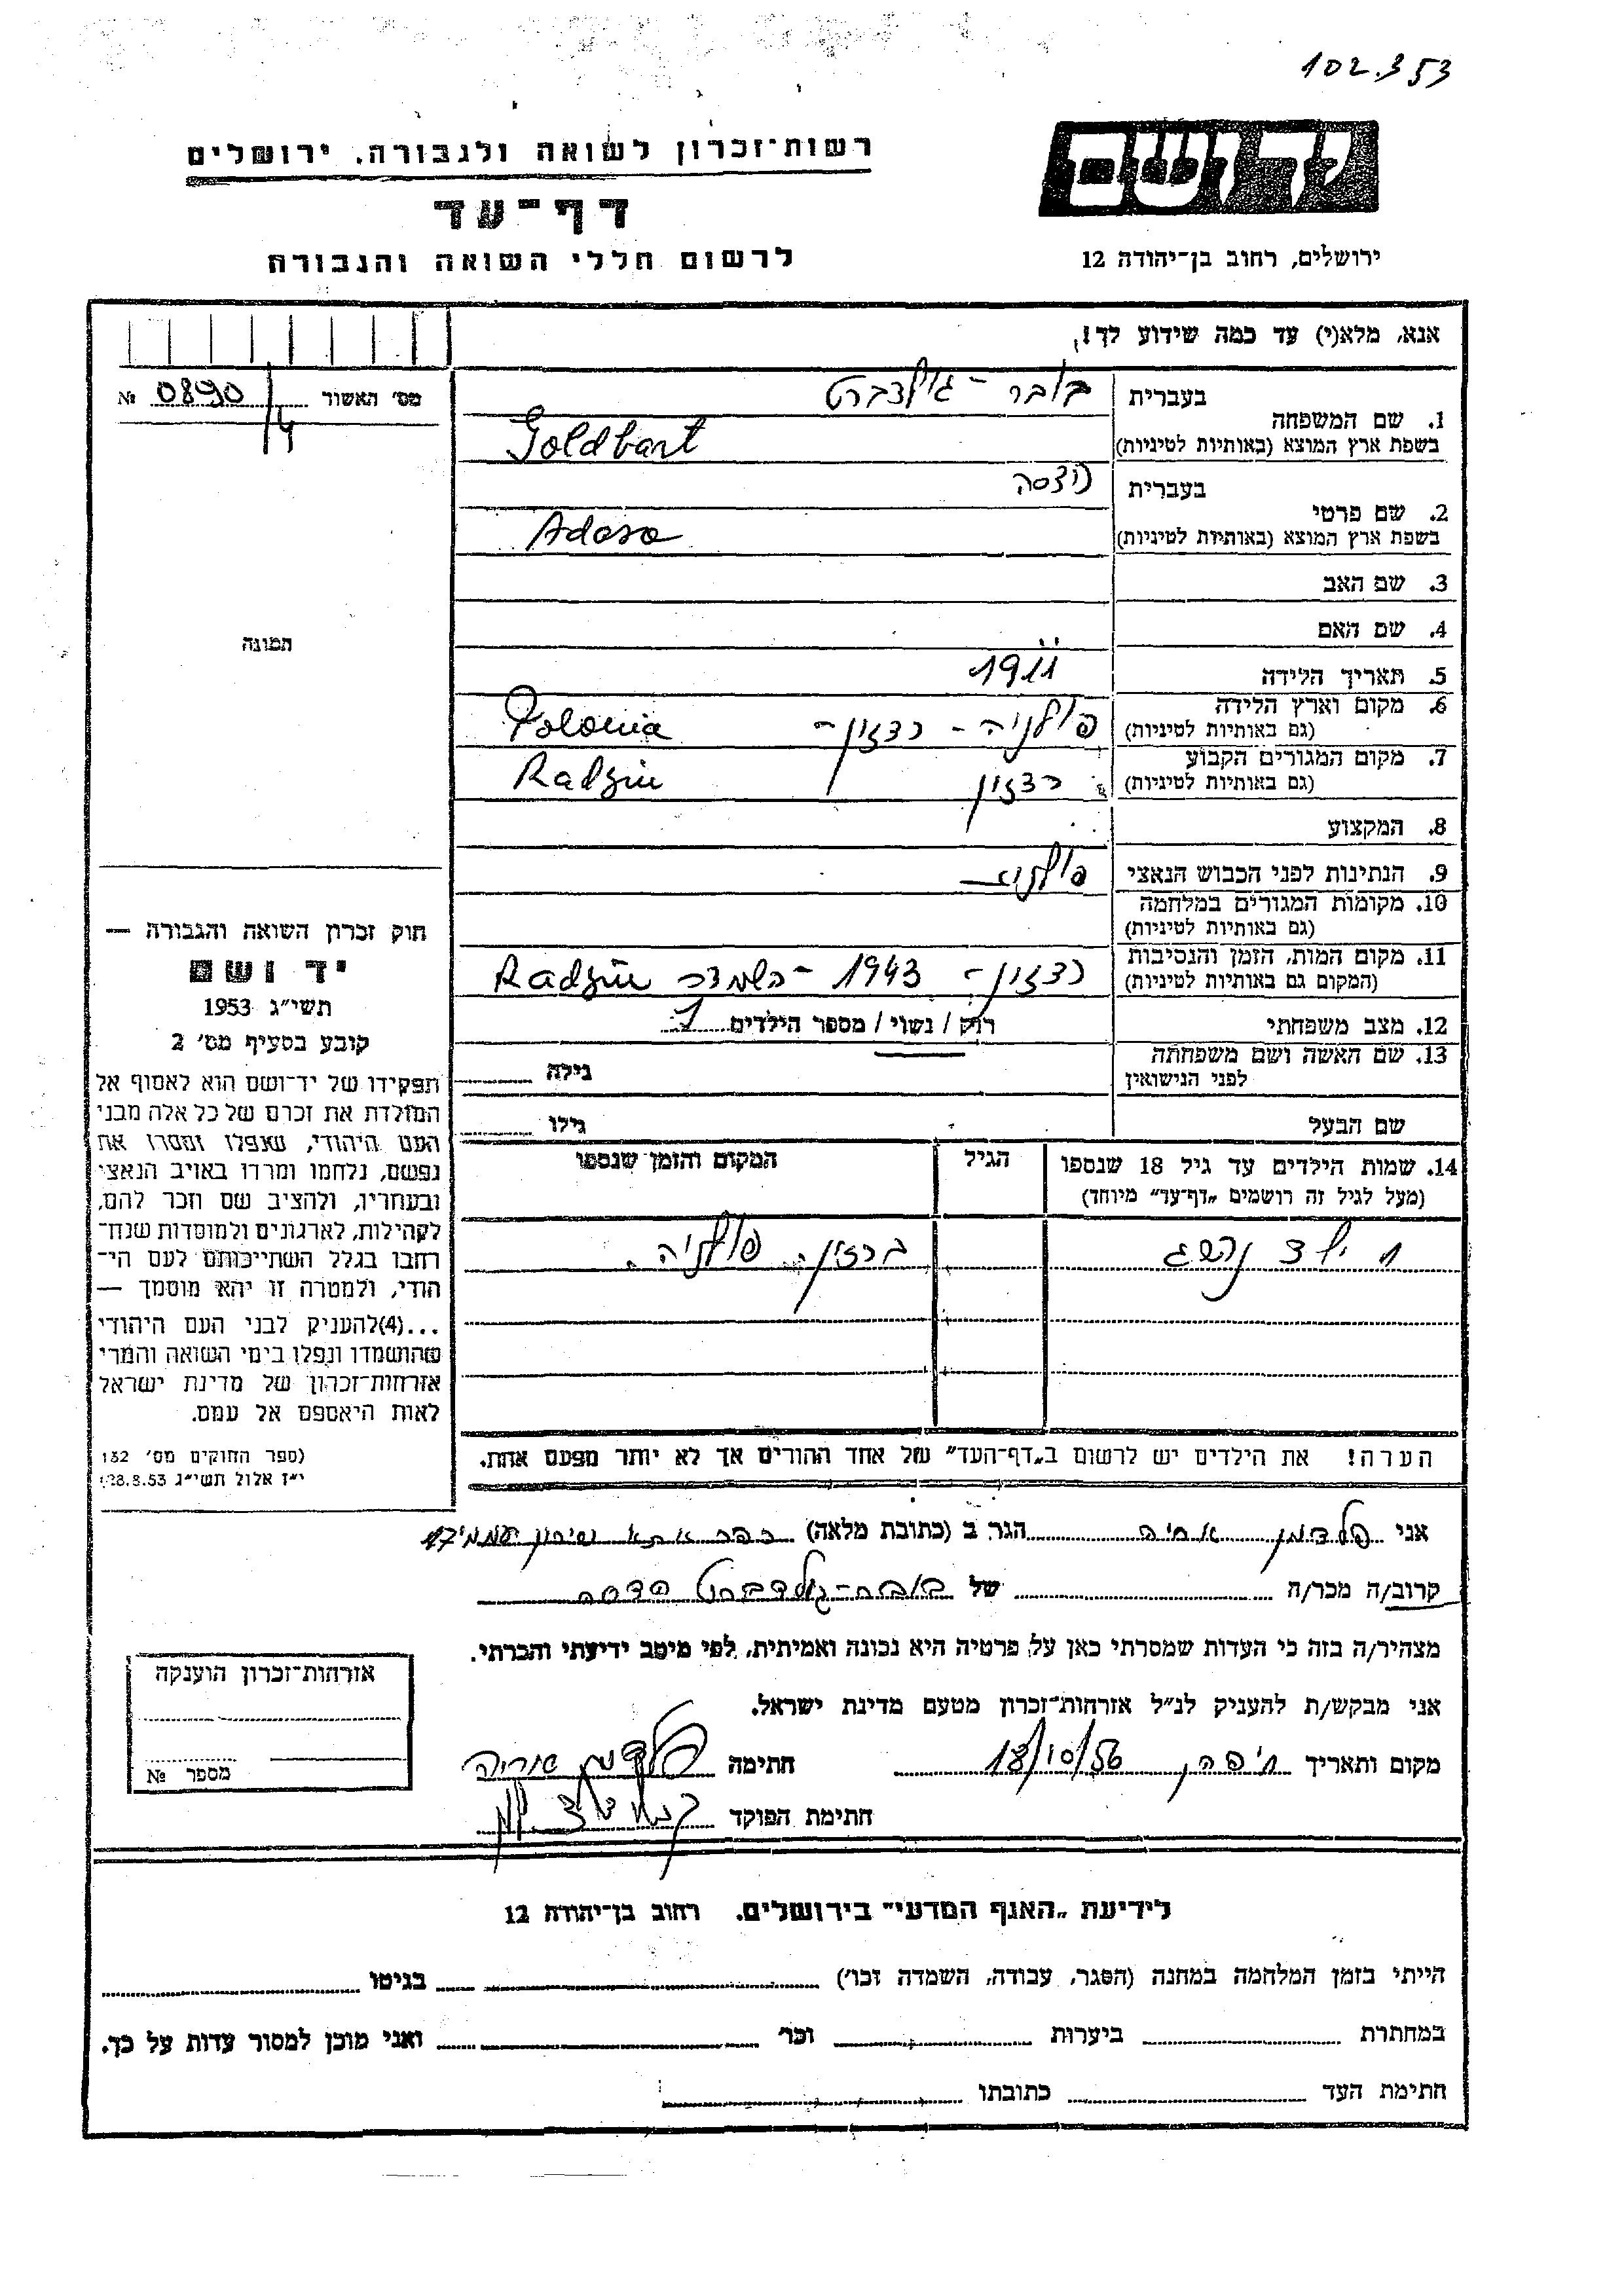 102.353
רשות־זכרון לשואה ולגבורה. ירושלים
יד ושם
דף־עד
לרשום חללי השואה והגבורה
ירושלים, רחוב בן־יהודה 12
אנא, מלא(י) עד כמה שידוע לך!
מס׳ האשור 0890/4 №
1. שם המשפחה
בעברית בובר - גולדברט
בשפת ארץ המוצא (באותיות לטיניות) Goldbart
2. שם פרטי
בעברית
בשפת ארץ המוצא (באותיות לטיניות) Adasa
3. שם האב
4. שם האם
תמונה
5. תאריך הלידה 1911
6. מקום וארץ הלידה
(גם באותיות לטיניות) פולניה - רדזין - Polonia
7. מקום המגורים הקבוע
(גם באותיות לטיניות) רדזין Radzin
8. המקצוע
9. הנתינות לפני הכבוש הנאצי פולנית
10. מקומות המגורים במלחמה
(גם באותיות לטיניות)
11. מקום המות, הזמן והנסיבות
(המקום גם באותיות לטיניות) רדזין - 1943 - השמדה Radzin
12. מצב משפחתי רווק / נשוי / מספר הילדים 1
13. שם האשה ושם משפחתה
לפני הנישואין גילה
שם הבעל גילו
14. שמות הילדים עד גיל 18 שנספו
(מעל לגיל זה רושמים „דף־עד״ מיוחד)
הגיל
המקום והזמן שנספו
1 ילד נהרג
ברדזין פולניה.
הערה! את הילדים יש לרשום ב„דף־העד״ של אחד ההורים אך לא יותר מפעם אחת.
חוק זכרון השואה והגבורה —
יד ושם
תשי״ג 1953
קובע בסעיף מס׳ 2
תפקידו של יד־ושם הוא לאסוף אל
המולדת את זכרם של כל אלה מבני
העם היהודי, שנפלו ומסרו את
נפשם, נלחמו ומרדו באויב הנאצי
ובעוזריו, ולהציב שם וזכר להם,
לקהילות, לארגונים ולמוסדות שנח־
רבו בגלל השתייכותם לעם הי־
הודי, ולמטרה זו יהא מוסמך —
...(4)להעניק לבני העם היהודי
שהושמדו ונפלו בימי השואה והמרי
אזרחות־זכרון של מדינת ישראל
לאות היאספם אל עמם.
(ספר החוקים מס׳ 132
י״ז אלול תשי״ג 28.8.53)
אני פלדמן הגר ב (כתובת מלאה) כפר אתא שיכון עממי
קרוב/ה מכר/ה של בובר-גולדברט הדסה
מצהיר/ה בזה כי העדות שמסרתי כאן על פרטיה היא נכונה ואמיתית, לפי מיטב ידיעתי והכרתי.
אני מבקש/ת להעניק לנ״ל אזרחות־זכרון מטעם מדינת ישראל.
מקום ותאריך חיפה 18/10/56 חתימה פלדמן
חתימת הפוקד
אזרחות־זכרון הוענקה
מספר №
לידיעת „האגף המדעי״ בירושלים. רחוב בן־יהודה 12
הייתי בזמן המלחמה במחנה (הסגר, עבודה, השמדה וכו׳) בגיטו
במחתרת ביערות וכו׳ ואני מוכן למסור עדות על כך.
חתימת העד כתובתו